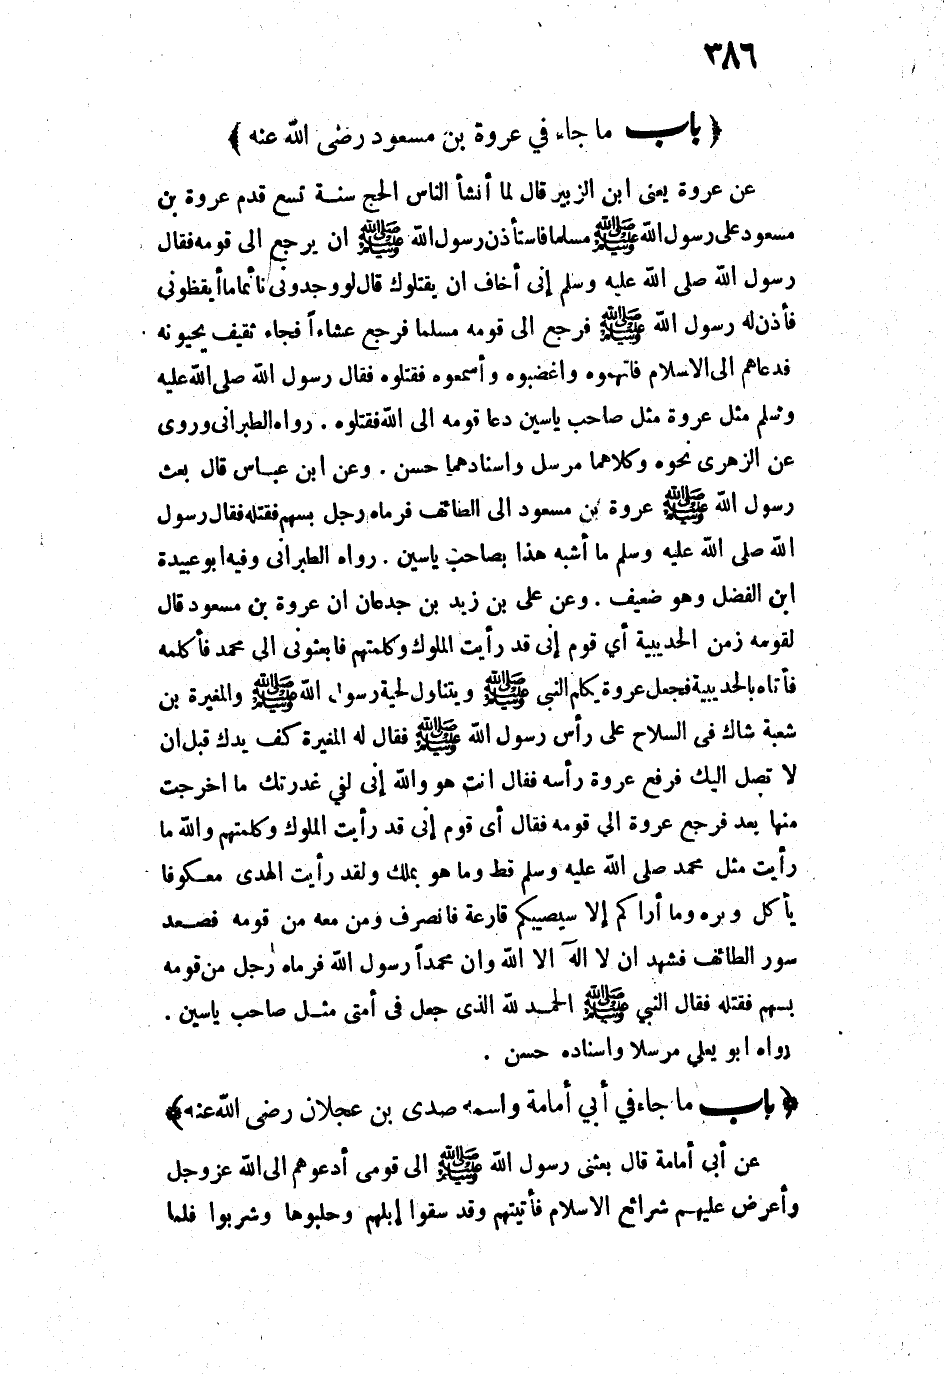 ٣٨٦
﴿ باب ما جاء في عروة بن مسعود رضى الله عنه ﴾
عن عروة يعنى ابن الزبير قال لما أنشأ الناس الحج سنة تسع قدم عروة بن
مسعود على رسول الله ﷺ مسلما فاستأذن رسول الله ﷺ ان يرجع الى قومه فقال
رسول الله صلى الله عليه وسلم إنى أخاف ان يقتلوك قال لو وجدونى نائما ما أيقظونى
فأذن له رسول الله ﷺ فرجع الى قومه مسلما فرجع عشاءاً فجاء ثقيف يحيونه
فدعاهم الى الاسلام فاتهموه واغضبوه وأسمعوه فقتلوه فقال رسول الله صلى الله عليه
وسلم مثل عروة مثل صاحب ياسين دعا قومه الى الله فقتلوه . رواه الطبرانى وروى
عن الزهرى نحوه وكلاهما مرسل واسنادهما حسن . وعن ابن عباس قال بعث
رسول الله ﷺ عروة بن مسعود الى الطائف فرماه رجل بسهم فقتله فقال رسول
الله صلى الله عليه وسلم ما أشبه هذا بصاحب ياسين . رواه الطبرانى وفيه ابو عبيدة
ابن الفضل وهو ضعيف . وعن على بن زيد بن جدعان ان عروة بن مسعود قال
لقومه زمن الحديبية أي قوم إنى قد رأيت الملوك وكلمتهم فابعثونى الى محمد فأكلمه
فأتاه بالحديبية فجعل عروة يكلم النبى ﷺ ويتناول لحية رسول الله ﷺ والمغيرة بن
شعبة شاك فى السلاح على رأس رسول الله ﷺ فقال له المغيرة كف يدك قبل ان
لا تصل اليك فرفع عروة رأسه فقال انت هو والله إنى لفي غدرتك ما اخرجت
منها بعد فرجع عروة الي قومه فقال أى قوم إنى قد رأيت الملوك وكلمتهم والله ما
رأيت مثل محمد صلى الله عليه وسلم قط وما هو بملك ولقد رأيت الهدى معكوفا
يأكل وبره وما أراكم إلا سيصيبكم قارعة فانصرف ومن معه من قومه فصعد
سور الطائف فشهد ان لا اله الا الله وان محمداً رسول الله فرماه رجل من قومه
بسهم فقتله فقال النبي ﷺ الحمد لله الذى جعل فى أمتى مثل صاحب ياسين .
رواه ابو يعلي مرسلا واسناده حسن .
﴿ باب ما جاء في أبي أمامة واسمه صدى بن عجلان رضى الله عنه ﴾
عن أبى أمامة قال بعثنى رسول الله ﷺ الى قومى أدعوهم الى الله عز وجل
وأعرض عليهم شرائع الاسلام فأتيتهم وقد سقوا إبلهم وحلبوها وشربوا فلما